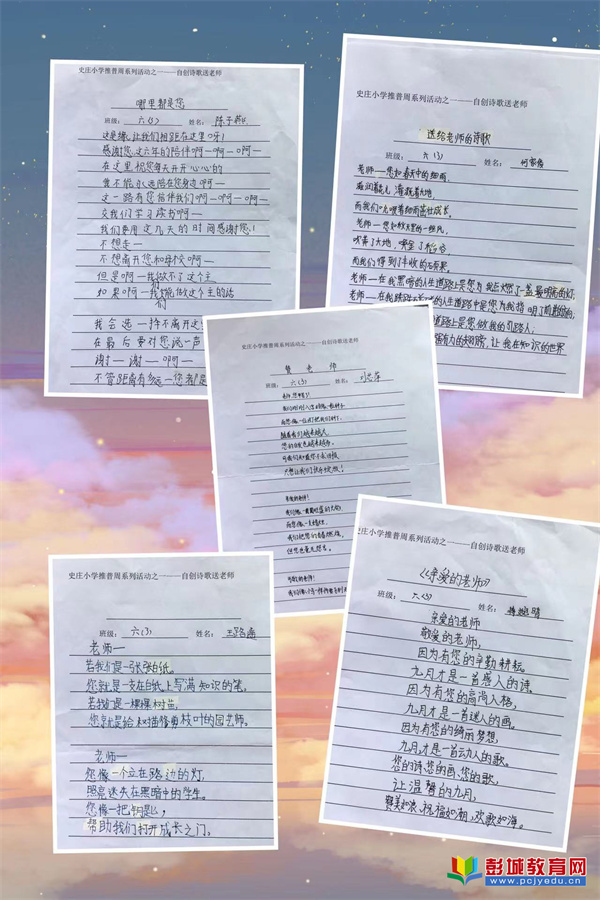 史庄小学推普周系列活动之———自创诗歌送老师
哪里都是您
班级：六(3) 姓名：陈子
这是缘,让我们相距在这里呀!
感谢您,这六年的陪伴啊一啊一啊一
在这里祝您每天开开心心的
我不能永远陪在您身边啊一
这一路有您陪伴我们啊一啊一啊一
交我们学习读书啊一
我们要用这几天的时间感谢您!
不想走一
不想离开您和母校啊一
但是啊一我们做不了这个主
如果啊一我能做这个主的话
我会选一择不离开这
在最后要对您说一声
谢一谢一啊一
不管距离有多远一您都是
史庄小学推普周系列活动之———自创诗歌送老师
送给老师的诗歌
班级：六(3) 姓名：何
老师一您如春天中的细雨,
滋润着 灌溉着大地,
而我们 吸着细雨茁壮成长。
老师一您如秋天里的一缕风,
吹 了大地,
而我们得到丰收的 果。
老师一在我黑暗的人生道路上是您为我点燃了一盏最明亮的灯,
老师一在我 的人生道路中是您为我指明了前 的
道路上是您做我的引路人,
有力的翅膀,让我在知识的世界
史庄小学推普周系列活动之———自创诗歌送老师
赞老师
班级：六(3) 姓名：刘 萍
老师,您辛苦了!
随着我们越来越大,
您的白发也越来越多,
可我们知道您不求回报,
只想让我们快乐成长!
敬爱的老师!
而您像一支蜡烛,
但您也毫无怨言。
可敬的老师!
史庄小学推普周系列活动之———自创诗歌送老师
班级：六(3) 姓名：王路
老师一
若我们是一张张白纸,
您就是一支在白纸上写满知识的笔,
若我们是一棵棵树苗,
您就是给树苗修剪枝叶的园艺师。
老师一
您像一个立在路边的灯,
照亮迷失在黑暗中的学生。
您像一把钥匙,
帮助我们打开成长之门。
史庄小学推普周系列活动之———自创诗歌送老师
《亲爱的老师》
班级：六(3) 姓名： 晴
亲爱的老师
敬爱的老师,
因为有您的辛勤耕耘。
九月才是一首感人的诗。
因为有您的高尚人格,
九月才是一首迷人的画。
因为有您的绮丽梦想,
九月才是一首动人的歌。
您的诗、您的画、您的歌,
让温馨的九月,
赞美如浪、祝福如潮,欢歌如海。
彭城教育网
www.pcjyedu.cn